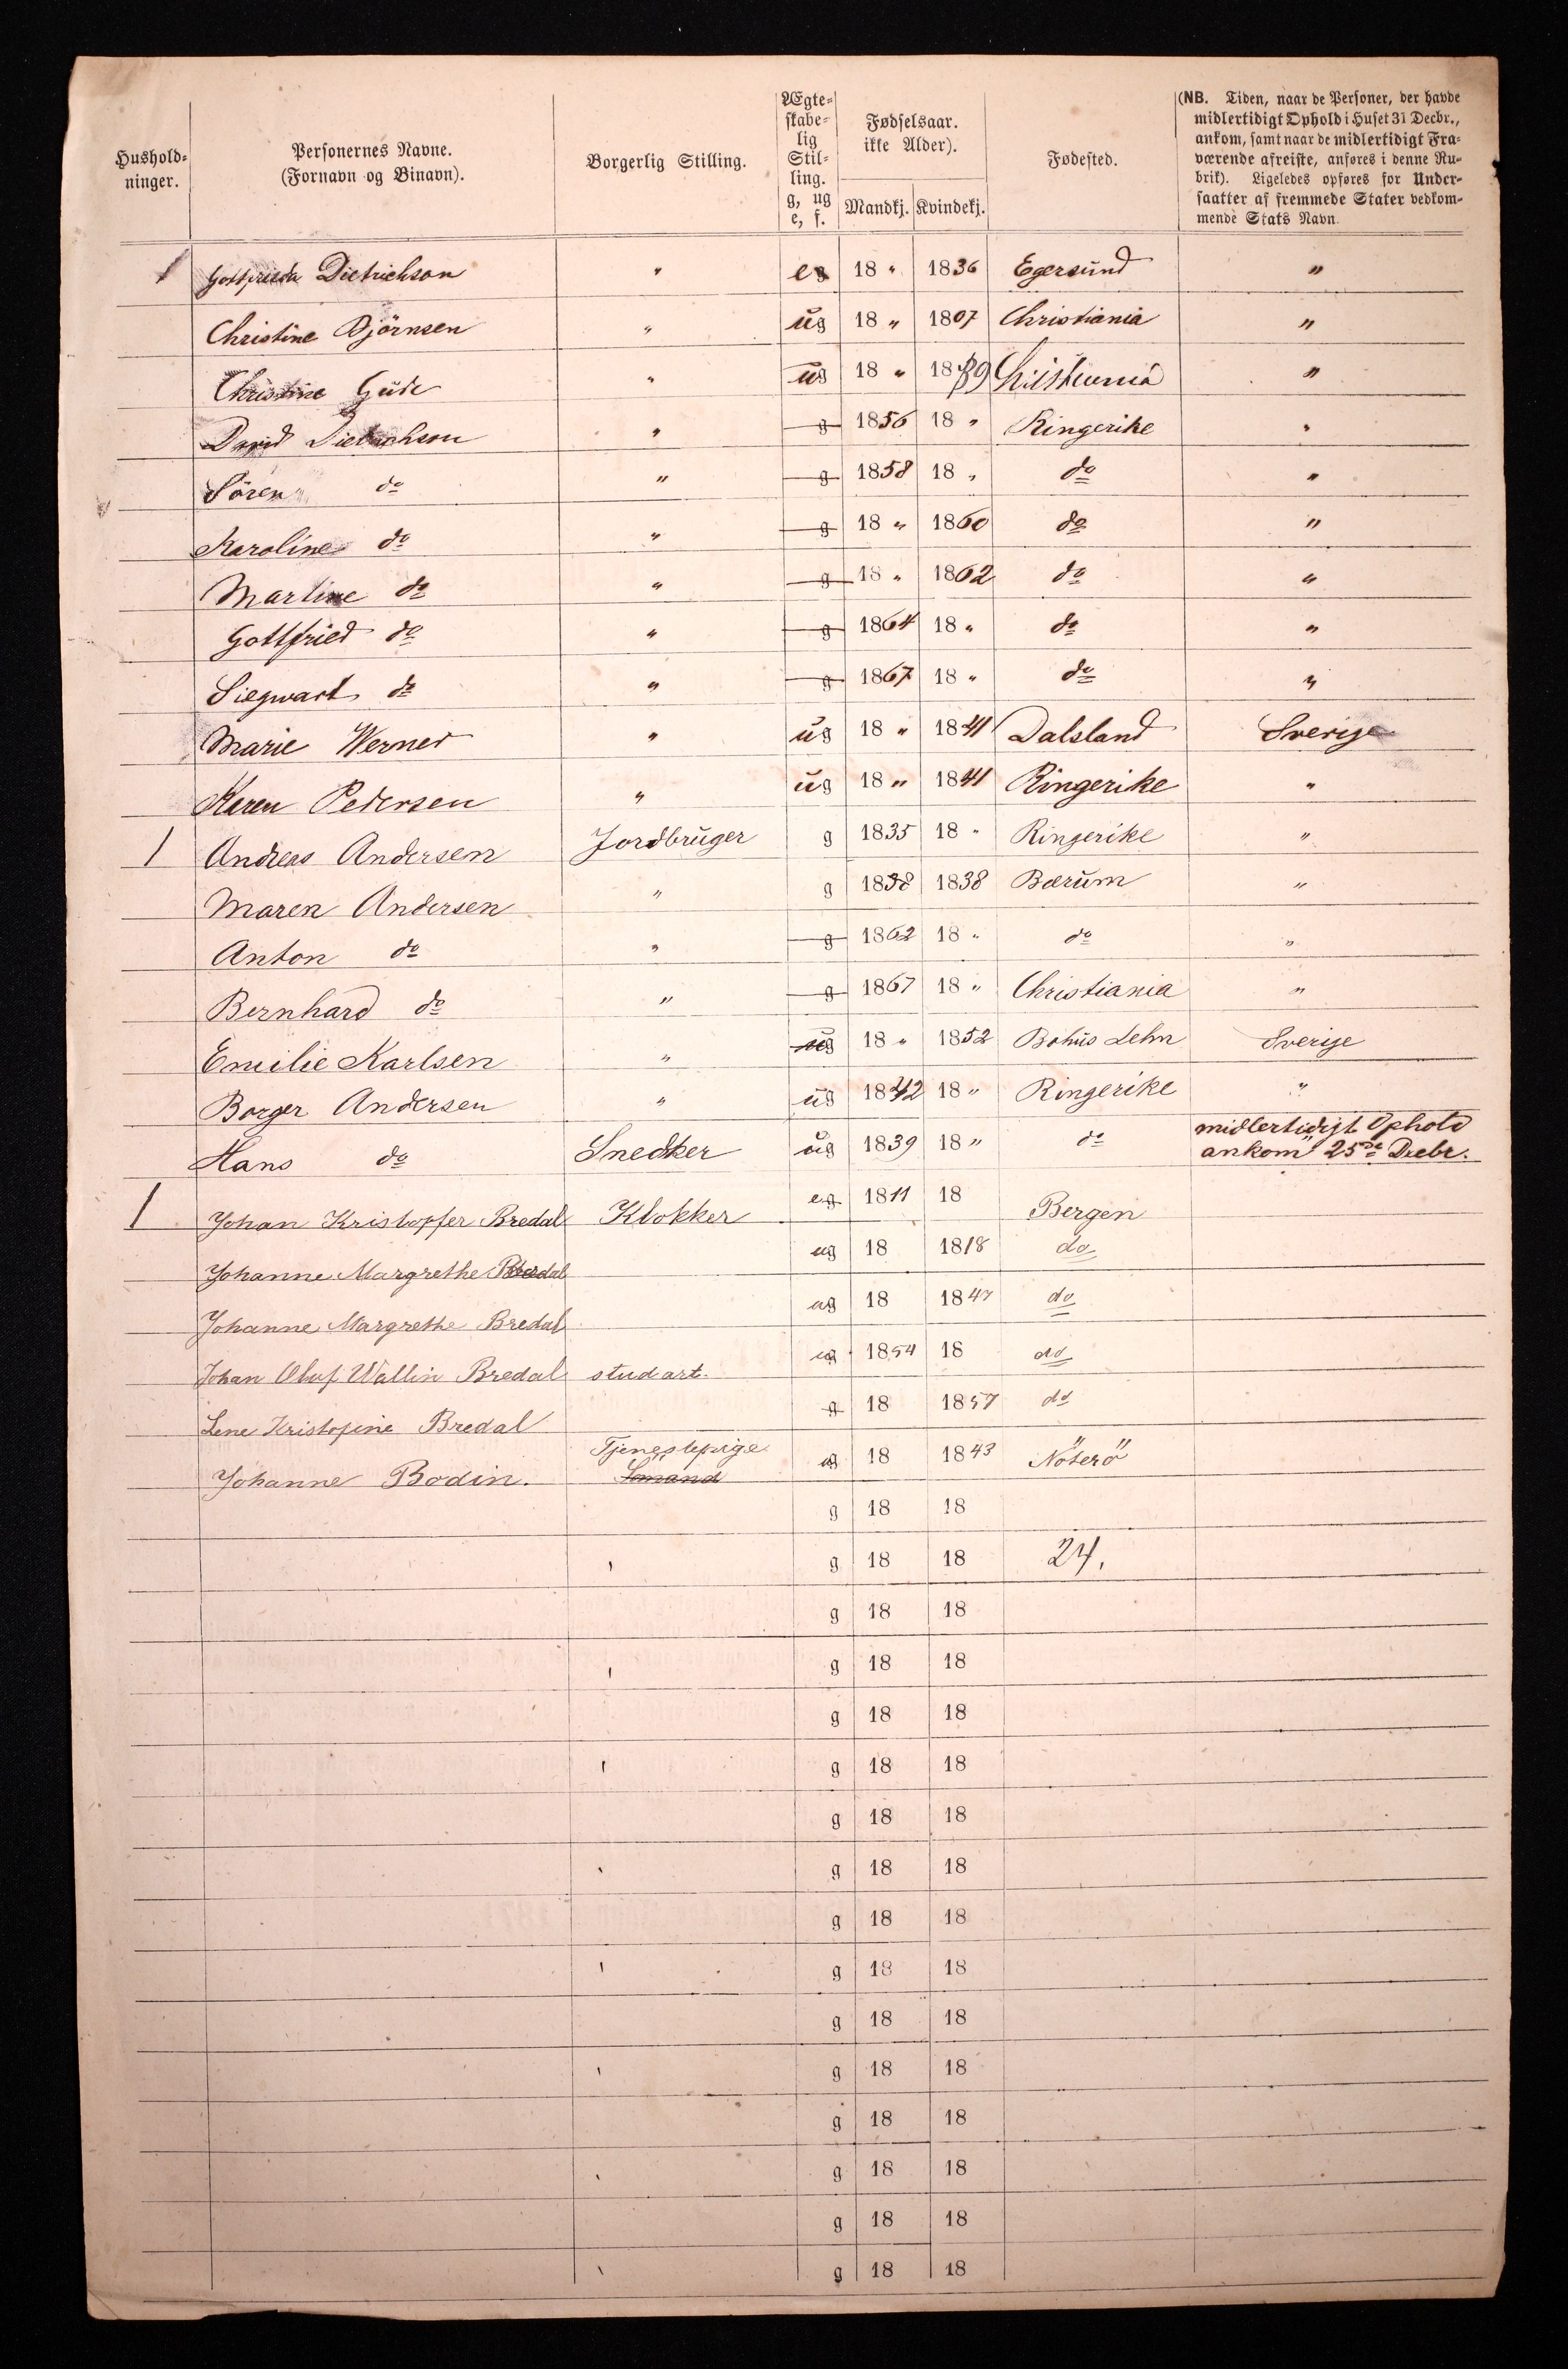 Hushold-
ninger.
Personernes Navne.
(Fornavn og Binavn).
Borgerlig Stilling.
Ægte-
skabe-
lig
Stil-
ling.
g, ug
e, f.
Fødselsaar.
ikke Alder).
Mandkj. Kvindekj.
Fødested.
(NB. Tiden, naar de Personer, der havde
midlertidigt Ophold i Huset 31 Decbr.,
ankom, samt naar de midlertidigt Fra-
værende afreiste, anføres i denne Ru-
brik). Ligeledes opføres for Under-
saatter af fremmede Stater vedkom-
mende Stats Navn.
1 Dietrichson " e 18 " 1836 Egersund "
Christine Björnsen " ug 18 " 1807 Christiania "
Christine Gude " ug 18 " 18 "
David Dietrichson " g 1856 18 " Ringerike "
Sören do " g 1858 18 " do "
Karoline do " g 18 " 1860 do "
Martine do " g 18 " 1862 do "
Gottfried do " g 1864 18 " do "
Siegwart do " g 1867 18 " do "
Marie Werner " ug 18 " 1841 Dalsland Sverige
Karen Pedersen " ug 18 " 1841 Ringerike "
1 Andreas Andersen Jordbruger g 1835 18 " Ringerike "
Maren Andersen " g 1838 1838 Bærum "
Anton do " g 1862 18 " do "
Bernhard do " g 1867 18 " Christiania "
Emilie Karlsen " ug 18 " 1852 Bohus Lehn Sverige
Borger Andersen " ug 1842 18 " Ringerike "
Hans do Snedker ug 1839 18 " do midlertidigt Ophold
ankom 25de Decbr.
1 Johan Kristopfer Bredal Klokker eg 1811 18 Bergen
Johanne Margrethe Bredal ug 18 1818 do
Johanne Margrethe Bredal ug 18 1847 do
Johan Oluf Wallin Bredal stud art. ug 1854 18 do
Lene Kristofine Bredal g 18 1857 do
Tjenestepige
Johanne Bodin. Sömand ug 18 1843 Nöterö
g 18 18
g 18 18 24.
g 18 18
g 18 18
g 18 18
g 18 18
g 18 18
g 18 18
g 18 18
g 18 18
g 18 18
g 18 18
g 18 18
g 18 18
g 18 18
g 18 18